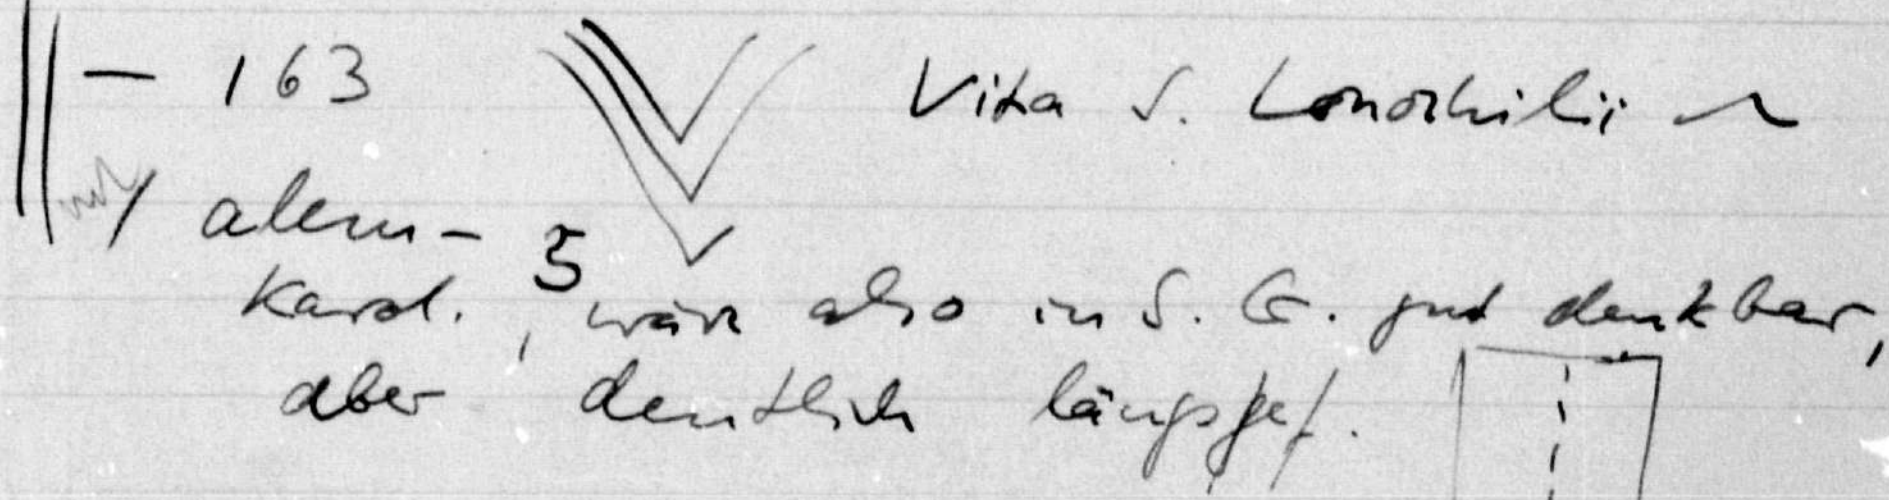 – 163 Vita S. Lonochilii
alem-
Karol. 5, wäre also in S. G. gut denkbar,
aber deutlich längsgef.